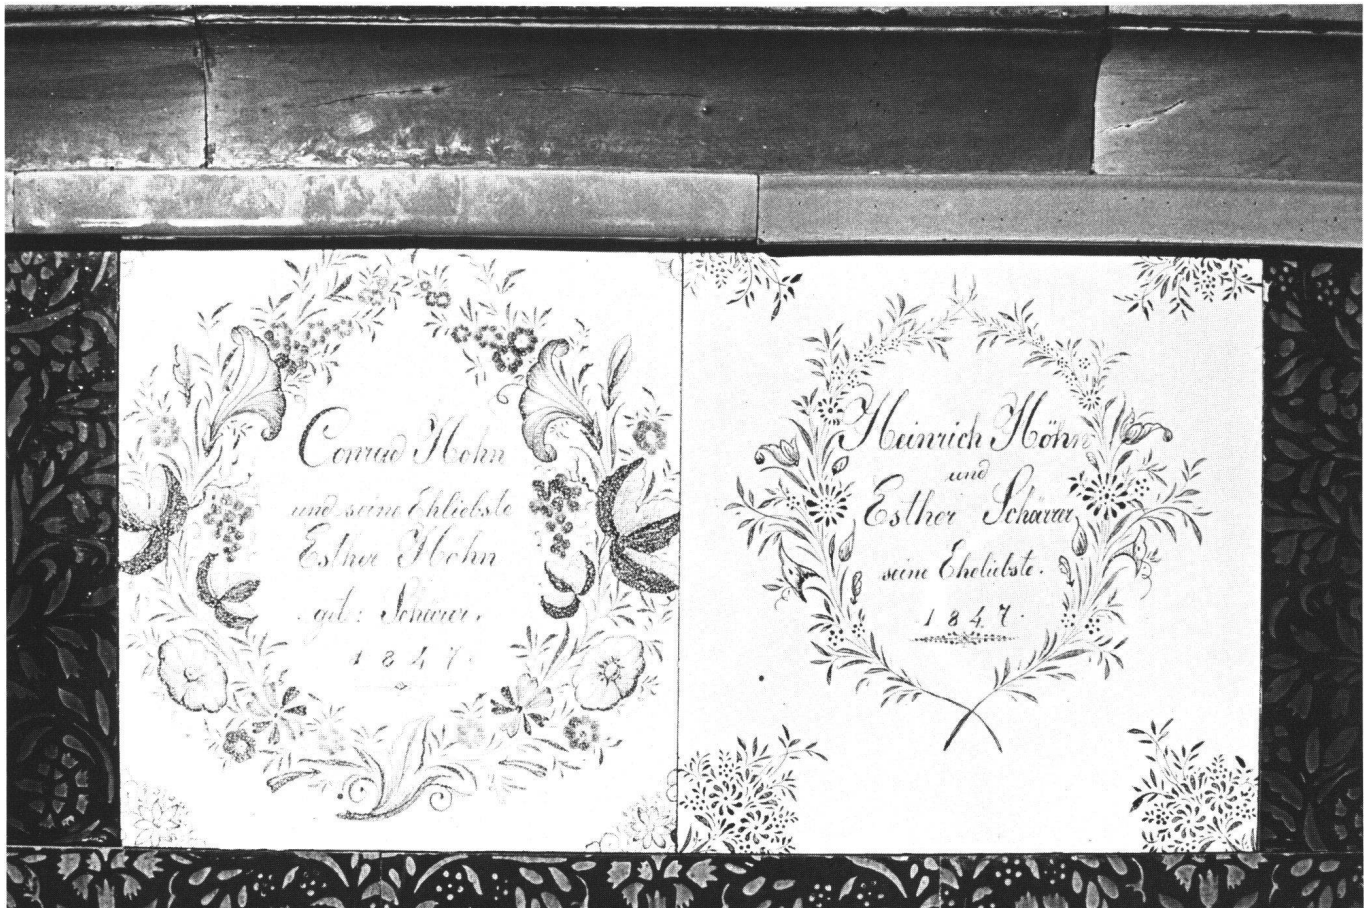 Conrad Höhn
und seine Ehliebste
Esther Höhn
geb: Schärer.
1847.
Heinrich Höhn
und
Esther Schärer
seine Eheliebste.
1847.